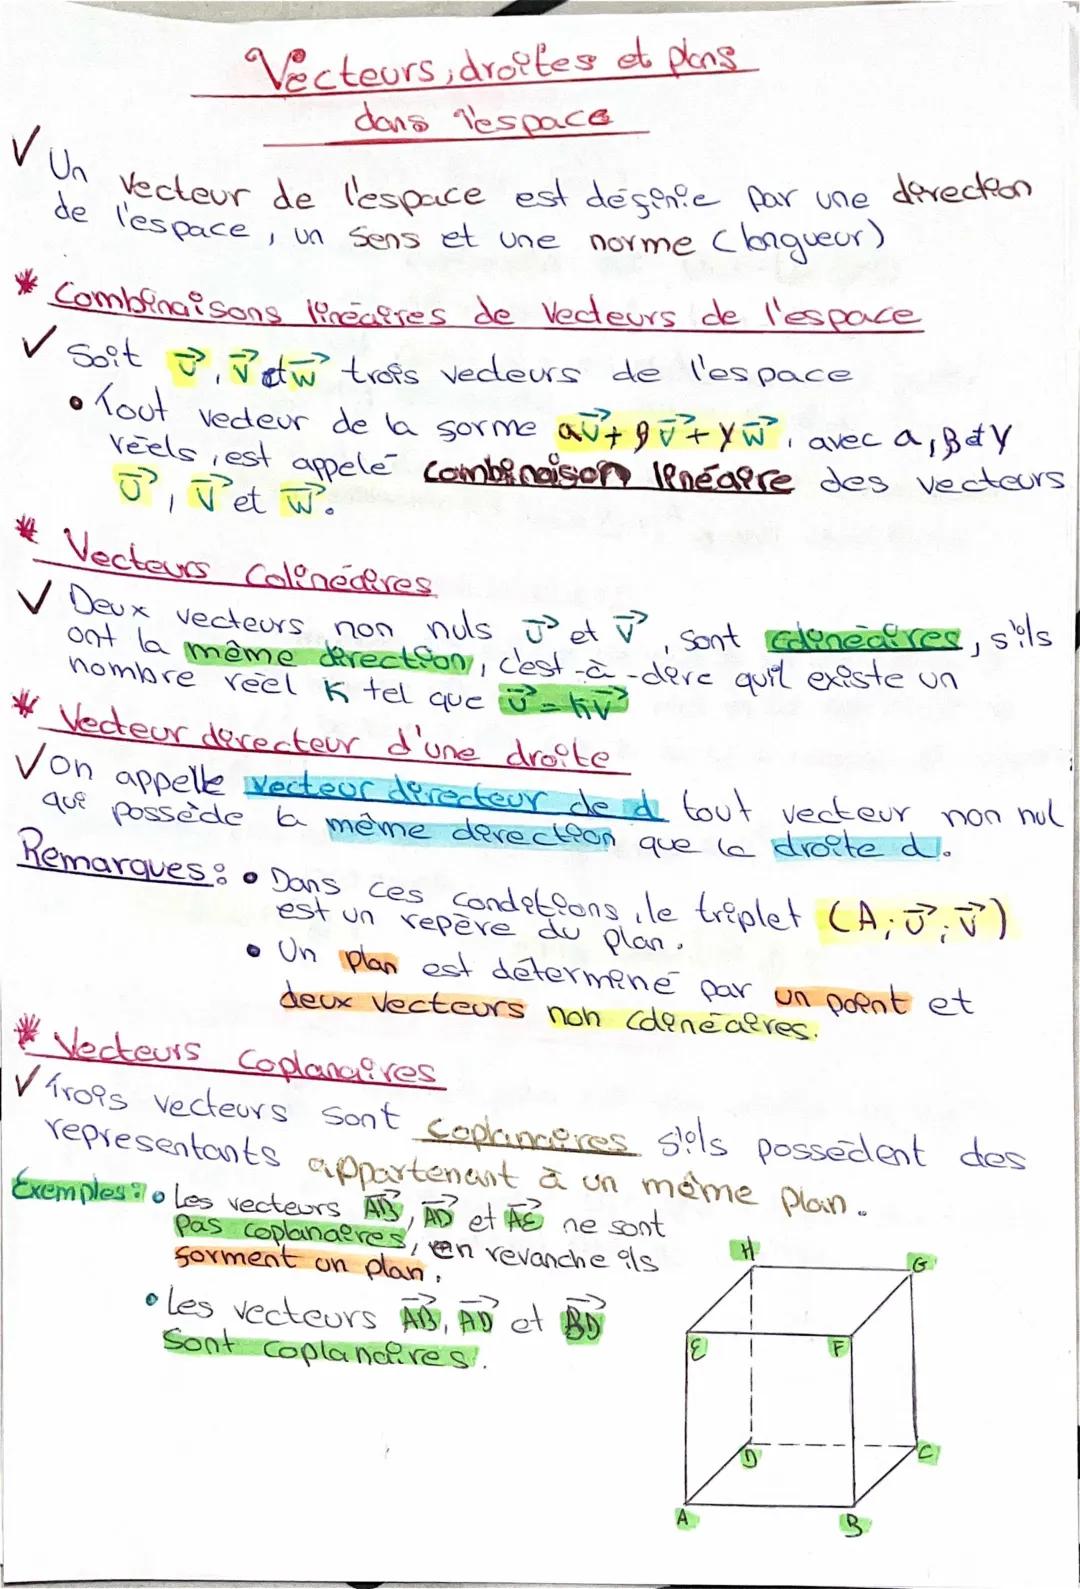 Vecteurs, droites et plans
dans l'espace
✓ Un vecteur de l'espace est définie par une direction
de l'espace, un sens et une norme (longueur)
* Combinaisons linéaires de vecteurs de l'espace
✓ Soit u⃗, v⃗ et w⃗ trois vecteurs de l'espace
• Tout vecteur de la forme αu⃗ + βv⃗ + γw⃗, avec α, β et γ
réels, est appelé combinaison linéaire des vecteurs
u⃗, v⃗ et w⃗.
* Vecteurs Colinéaires
✓ Deux vecteurs non nuls u⃗ et v⃗, sont colinéaires, s'ils
ont la même direction, c'est-à-dire qu'il existe un
nombre réel k tel que u⃗ = kv⃗
* Vecteur directeur d'une droite
✓ On appelle vecteur directeur de d tout vecteur non nul
qui possède la même direction que la droite d.
Remarques: • Dans ces conditions, le triplet (A; u⃗; v⃗)
est un repère du plan.
• Un plan est déterminé par un point et
deux vecteurs non colinéaires.
* Vecteurs Coplanaires
✓ Trois vecteurs sont coplanaires s'ils possèdent des
représentants appartenant à un même plan.
Exemples: • Les vecteurs AB⃗, AD⃗ et AE⃗ ne sont
pas coplanaires, en revanche ils
forment un plan.
• Les vecteurs AB⃗, AD⃗ et BD⃗
sont coplanaires.
H
G
E
F
D
C
A
B